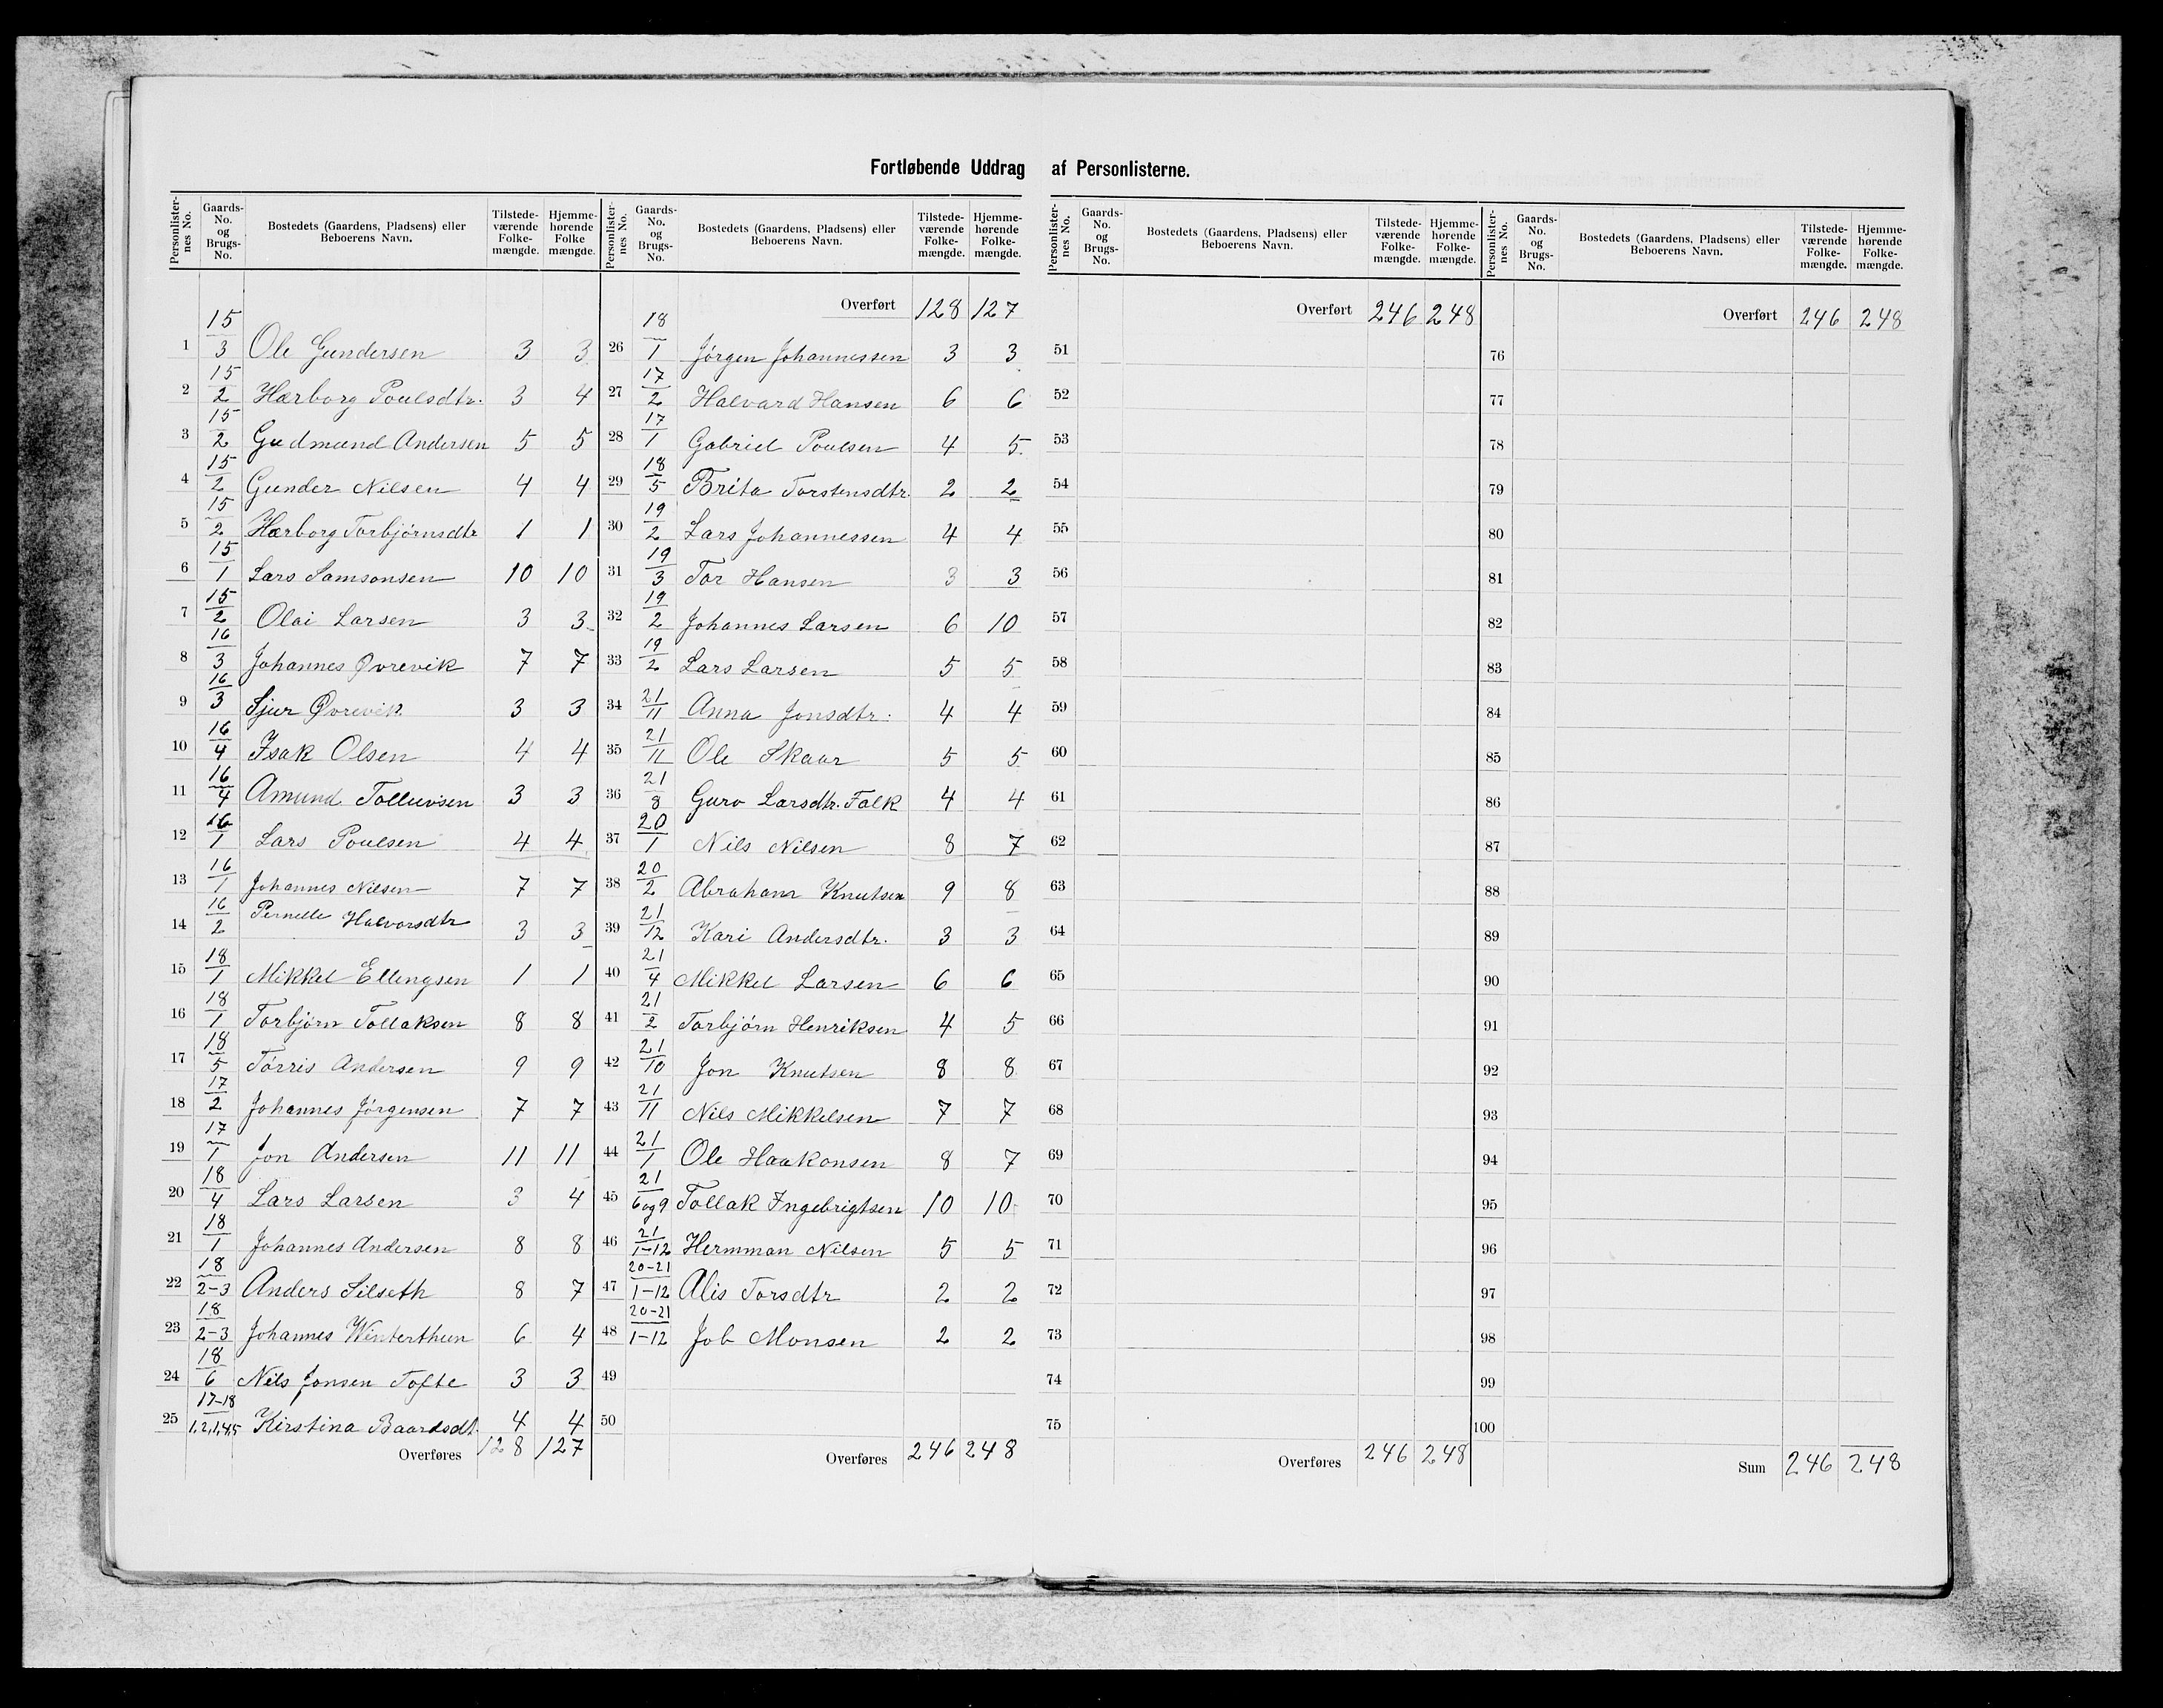 Fortløbende Uddrag af Personlisterne.
Personlisternes No. Gaards-No. og Brugs-No. Bostedets (Gaardens, Pladsens) eller Beboerens Navn. Tilstedeværende Folkemængde. Hjemmehørende Folkemængde.
1 15/3 Ole Gundersen 3 3
2 15/2 Hærborg Poulsdtr. 3 4
3 15/2 Gudmund Andersen 5 5
4 15/2 Gunder Nilsen 4 4
5 15/2 Hærborg Torbjørnsdtr 1 1
6 15/1 Lars Samsonsen 10 10
7 15/2 Olai Larsen 3 3
8 16/3 Johannes Øvrevik 7 7
9 16/3 Sjur Øvrevik 3 3
10 16/4 Isak Olsen 4 4
11 16/4 Amund Tollevsen 3 3
12 16/1 Lars Poulsen 4 4
13 16/1 Johannes Nilsen 7 7
14 16/2 Pernelle Halvorsdtr 3 3
15 18/1 Mikkel Ellingsen 1 1
16 18/1 Torbjørn Tollaksen 8 8
17 18/5 Tørris Andersen 9 9
18 17/2 Johannes Jørgensen 7 7
19 17/1 Jon Andersen 11 11
20 18/4 Lars Larsen 3 4
21 18/1 Johannes Andersen 8 8
22 18/2-3 Anders Silseth 8 7
23 18/2-3 Johannes Winterthun 6 4
24 18/6 Nils Jonsen Tofte 3 3
25 17-18/1,2,1,4,5 Kirstina Baardsdt. 4 4
Overføres 128 127
Personlisternes No. Gaards-No. og Brugs-No. Bostedets (Gaardens, Pladsens) eller Beboerens Navn. Tilstedeværende Folkemængde. Hjemmehørende Folkemængde.
Overført 128 127
26 18/1 Jørgen Johannessen 3 3
27 17/2 Halvard Hansen 6 6
28 17/1 Gabriel Poulsen 4 5
29 18/5 Brita Torstensdtr. 2 2
30 19/2 Lars Johannessen 4 4
31 19/3 Tor Hansen 3 3
32 19/2 Johannes Larsen 6 10
33 19/2 Lars Larsen 5 5
34 21/11 Anna Jonsdtr. 4 4
35 21/11 Ole Skaar 5 5
36 21/8 Guro Larsdtr. Falk 4 4
37 20/1 Nils Nilsen 8 7
38 20/2 Abraham Knutsen 9 8
39 21/12 Kari Andersdtr. 3 3
40 21/4 Mikkel Larsen 6 6
41 21/2 Torbjørn Henriksen 4 5
42 21/10 Jon Knutsen 8 8
43 21/11 Nils Mikkelsen 7 7
44 21/1 Ole Haakonsen 8 7
45 21/6 og 9 Tollak Ingebrigtsen 10 10
46 21/1-12 Hermman Nilsen 5 5
47 20-21/1-12 Alis Torsdtr 2 2
48 20-21/1-12 Job Monsen 2 2
49
50
Overføres 246 248
Personlisternes No. Gaards-No. og Brugs-No. Bostedets (Gaardens, Pladsens) eller Beboerens Navn. Tilstedeværende Folkemængde. Hjemmehørende Folkemængde.
Overført 246 248
51
52
53
54
55
56
57
58
59
60
61
62
63
64
65
66
67
68
69
70
71
72
73
74
75
Overføres 246 248
Personlisternes No. Gaards-No. og Brugs-No. Bostedets (Gaardens, Pladsens) eller Beboerens Navn. Tilstedeværende Folkemængde. Hjemmehørende Folkemængde.
Overført 246 248
76
77
78
79
80
81
82
83
84
85
86
87
88
89
90
91
92
93
94
95
96
97
98
99
100
Sum 246 248